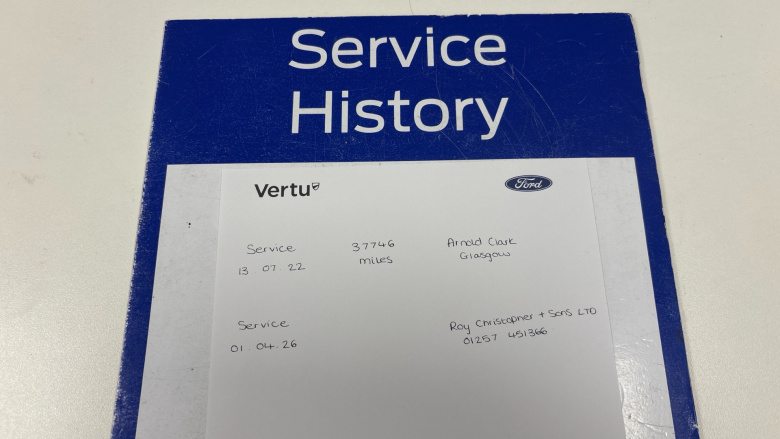 Service
History
Vertu
Ford
Service 37746 Arnold Clark
13 07 22 miles Glasgow
Service Roy Christopher + Sons LTD
01 04 26 01257 451366